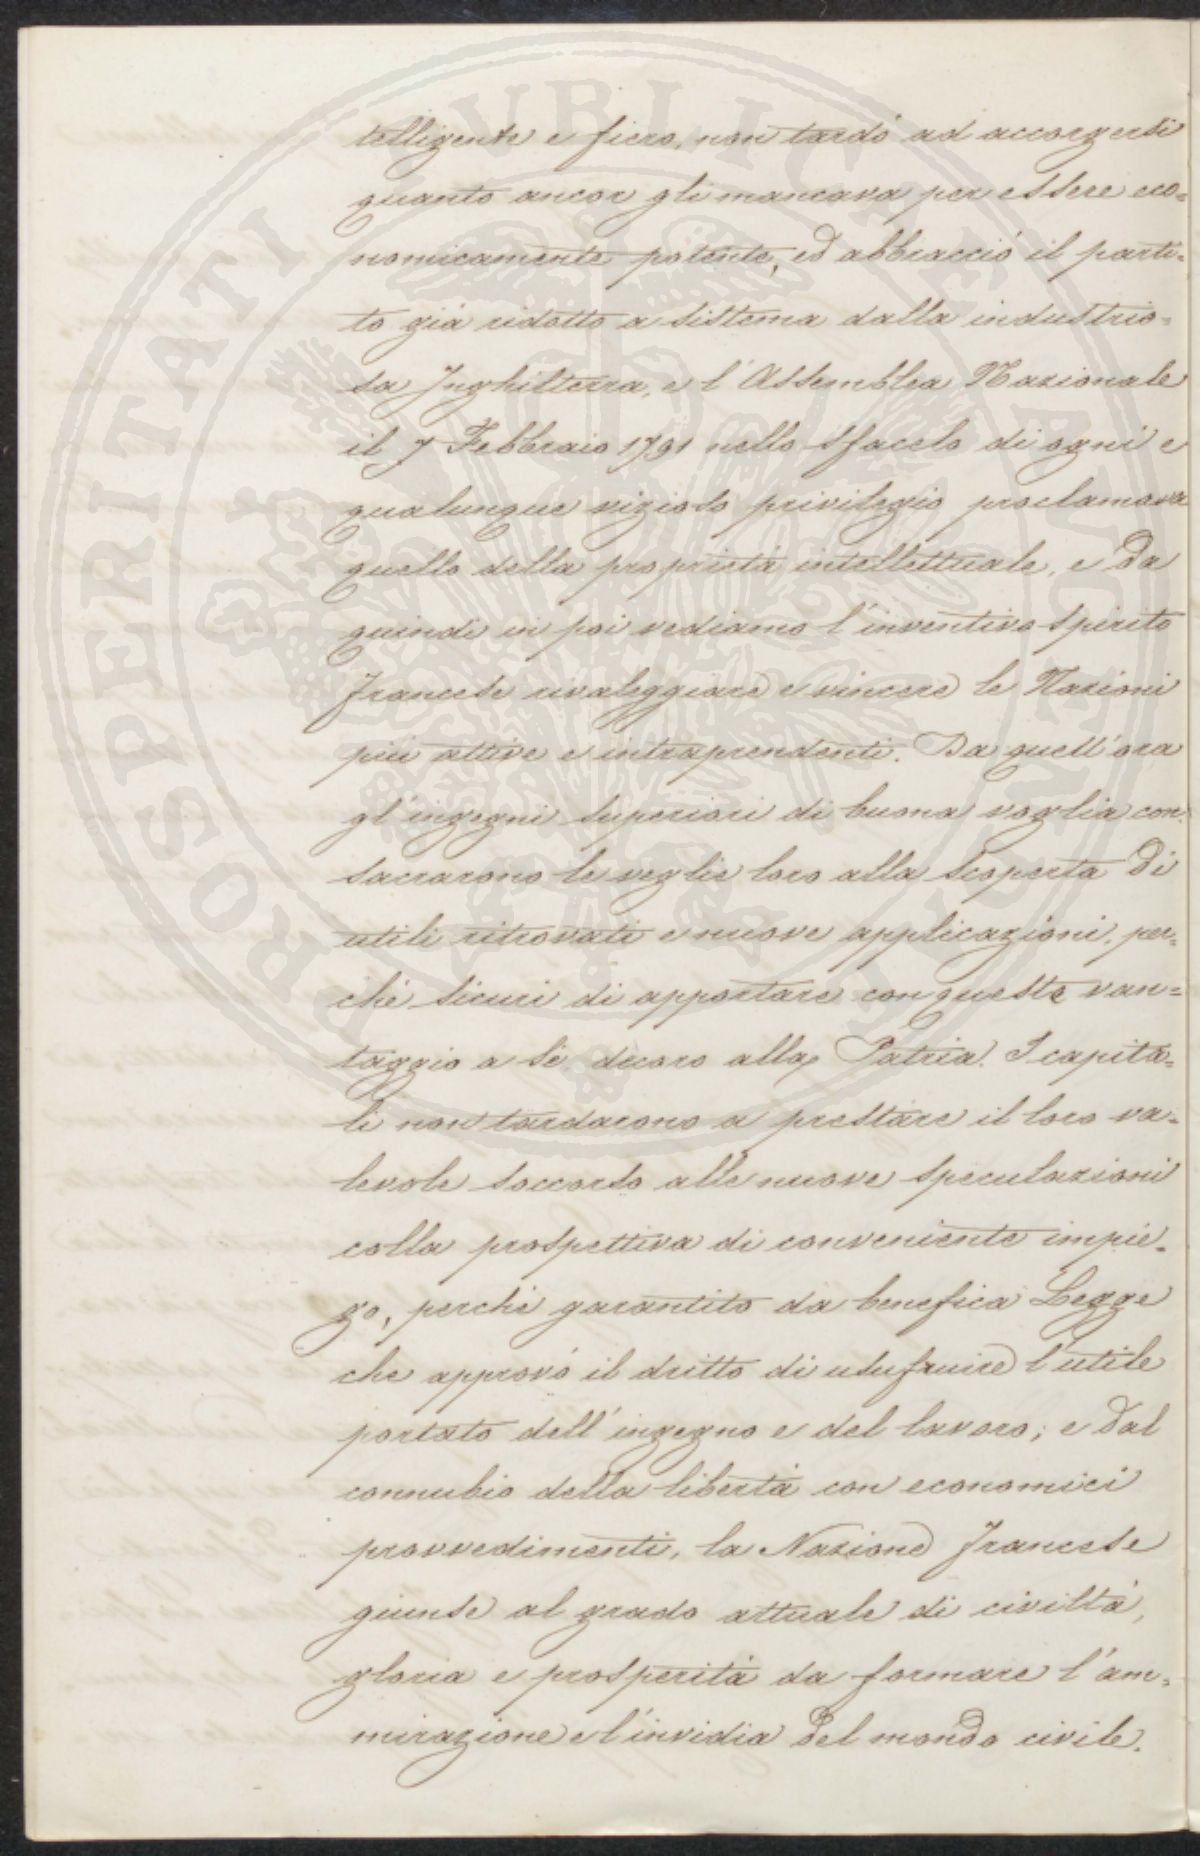 telligente e fiero, non tardò ad accorgersi
quanto ancor gli mancava per essere eco=
nomicamente potente, ed abbracciò il parti=
to già ridotto a sistema dalla industrio=
sa Inghilterra, e l'Assemblea Nazionale
il 7 Febbraio 1791 nello sfacelo di ogni e
qualunque vizioso privilegio proclamava
quello della proprietà intellettuale, e da
quindi in poi vediamo l'inventivo spirito
Francese rivaleggiare e vincere le Nazioni
più attive e intraprendenti. Da quell'ora
gl'ingegni superiori di buona voglia con=
sacrarono le veglie loro alla scoperta di
utili ritrovati e nuove applicazioni, per=
ché sicuri di apportare con queste van=
taggio a sè decoro alla Patria. I capita=
li non tardarono a prestare il loro va=
levole soccorso alle nuove speculazioni
colla prospettiva di conveniente impie=
go, perchè garantito da benefica Legge
che approvò il dritto di usufruire l'utile
portato dell'ingegno e del lavoro; e dal
connubio della libertà con economici
provvedimenti, la Nazione Francese
giunse al grado attuale di civiltà,
gloria e prosperità da formare l'am=
mirazione e l'invidia del mondo civile.
PROSPERITATI PVBLICAE AVGENDAE